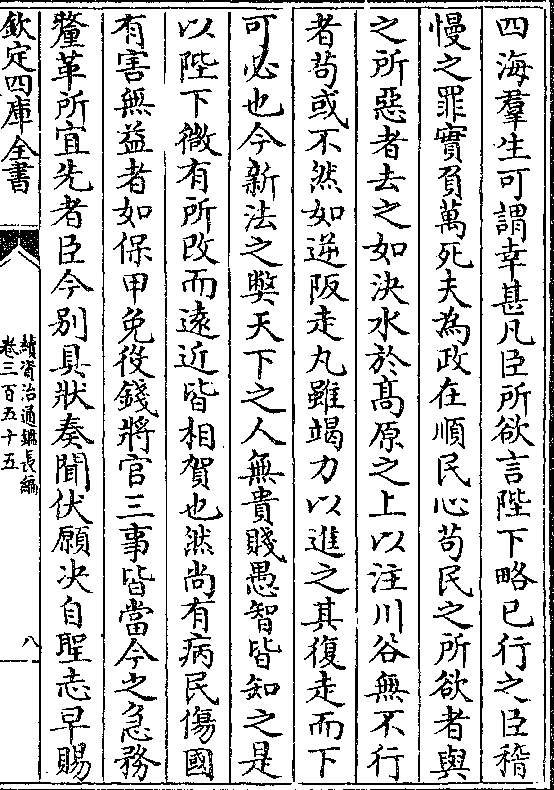 四海羣生可謂幸甚凡臣所欲言陛下略已行之臣稽
慢之罪實負萬死夫為政在順民心苟民之所欲者與
之所惡者去之如決水於髙原之上以注川谷無不行
者苟或不然如逆阪走丸雖竭力以進之其復走而下
可必也今新法之弊天下之人無貴賤愚智皆知之是
以陛下微有所改而遠近皆相賀也然尚有病民傷國
有害無益者如保甲免役錢將官三事皆當今之急務
釐革所宜先者臣今別具狀奏聞伏願決自聖志早賜
欽定四庫全書
續資治通鑑長編
卷三百五十五
八